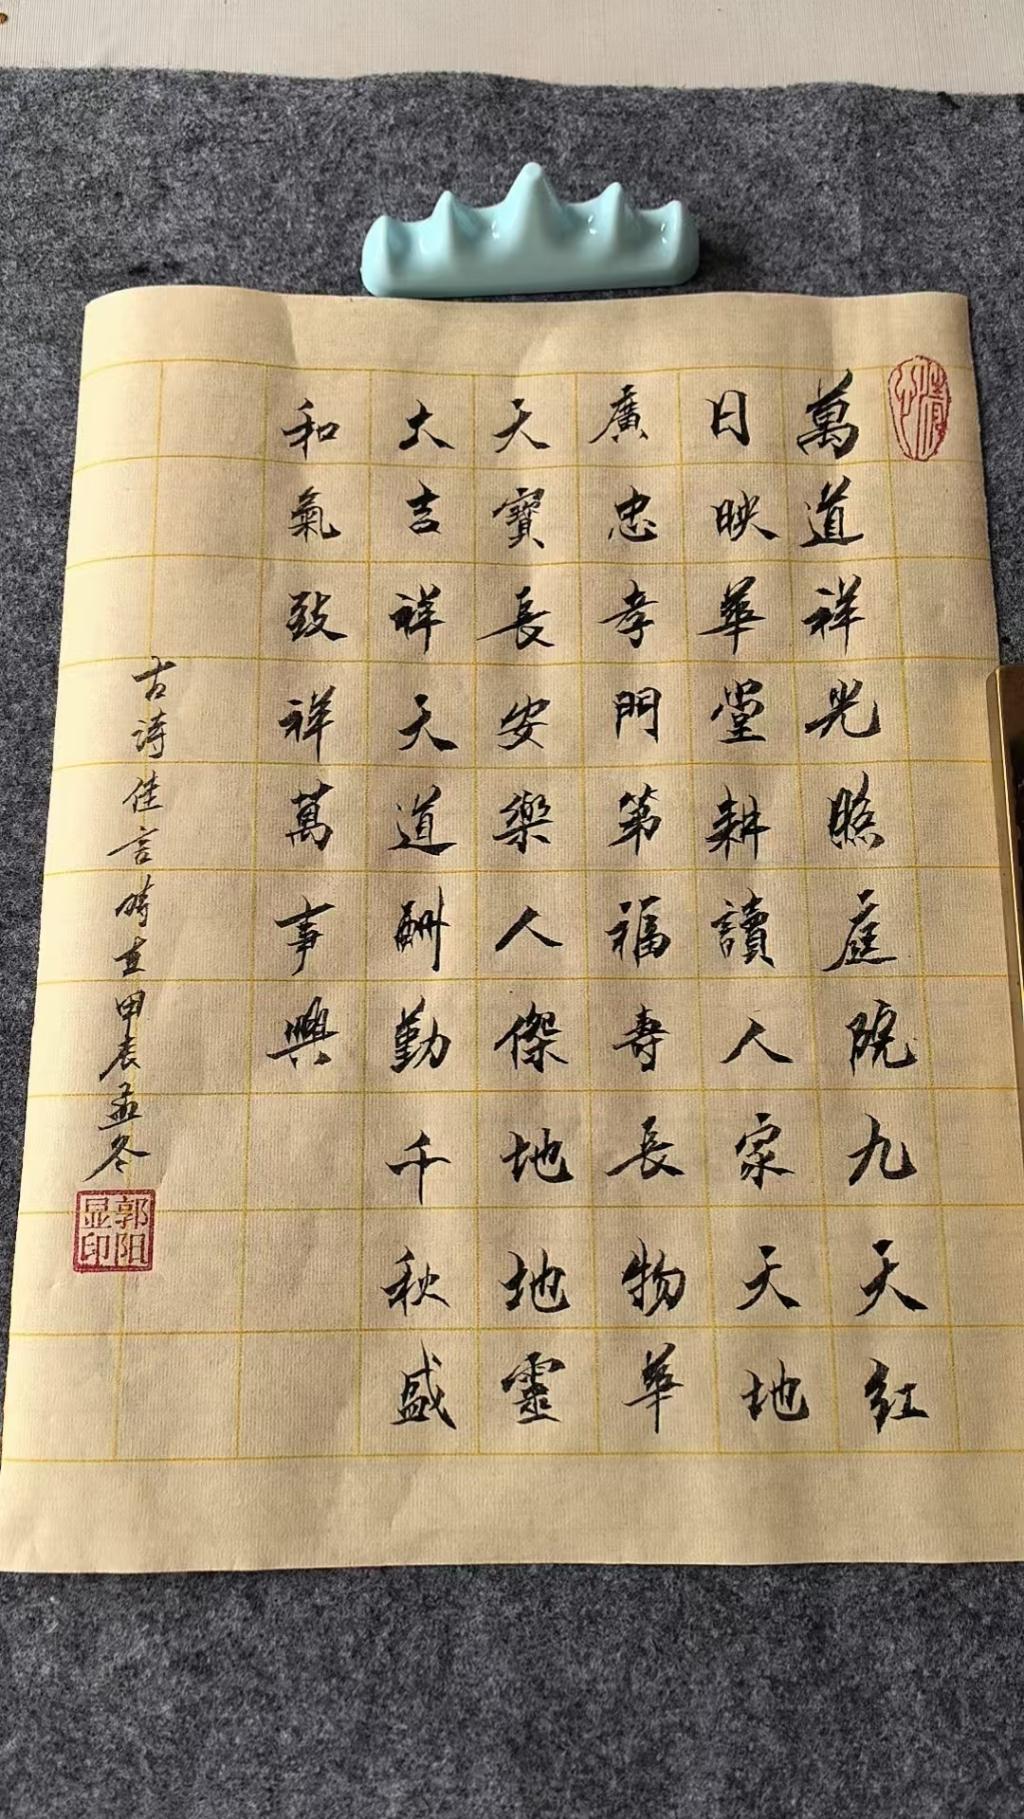 萬道祥光照庭院九天紅
日映華堂耕讀人家天地
廣忠孝門第福壽長物華
天寶長安樂人傑地地靈
大吉祥天道酬勤千秋盛
和氣致祥萬事興
古詩佳言時在甲辰孟冬
郭阳
显印